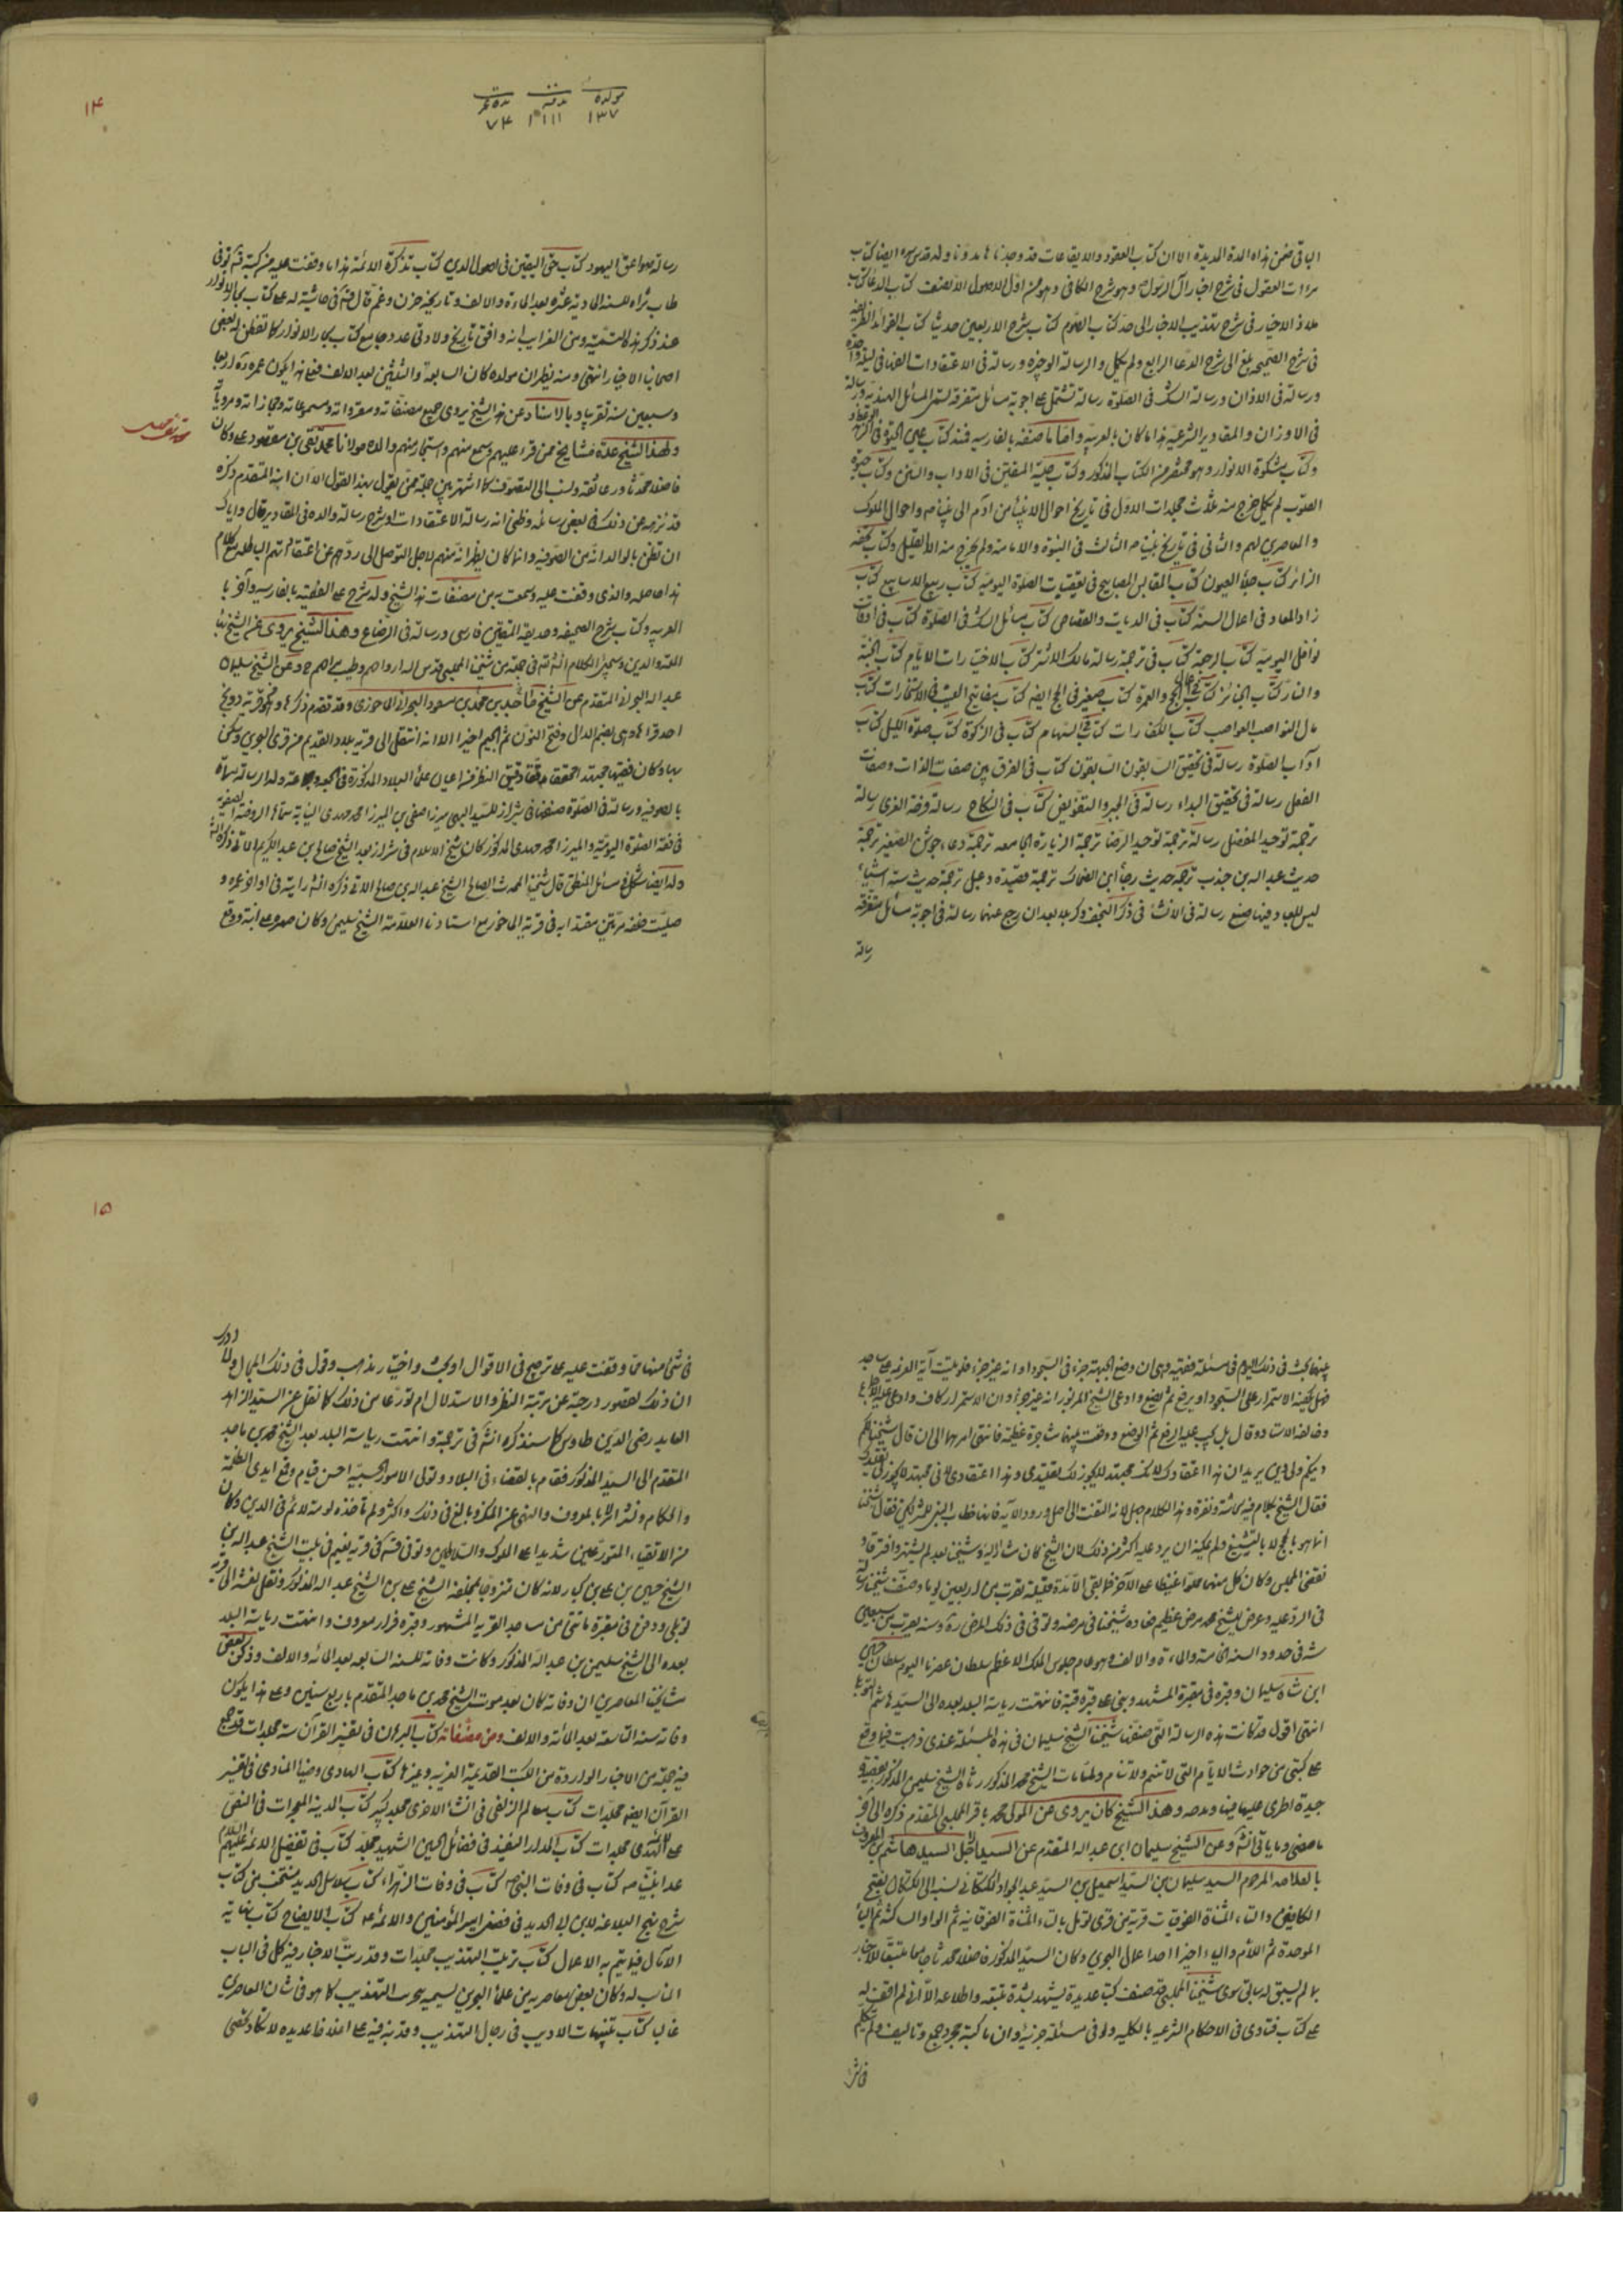 الباقي ضمن هذه المدة المديدة الا ان كتاب العقود والايقاعات قد وجدنا مدونا وله قدس سره ايضا كتاب
مرات العقول في شرح اخبار آل الرسول وهو شرح الكافي وهو من اول الاصول الا نصف كتاب الدعا كتاب
ملاذ الاخيار في شرح تهذيب الاخبار الى حد كتاب الصوم كتاب شرح الاربعين حديثا كتاب الفوائد الطريفة
في شرح الصحيفه بلغ الى شرح الدعا الرابع ولم يكمل والرسالة الوجيزه ورسالة في الاعتقادات الفها في ليلة واحدة
ورسالة في الاذان ورسالة الشك في الصلوة رسالة تشتمل على اجوبة مسائل متفرقة المسائل الهندية ورسالة
في الاوزان والمقادير الشرعية هذا ما كان بالعربية واما ما صنفه بالفارسيه فمنه كتاب عين الحيوة
وكتاب مشكوة الانوار وهو مختصر من الكتاب المذكور وكتاب حلية المتقين في الاداب والسنن وكتاب حيوة
القلوب لم يكمل خرج منه ثلاث مجلدات الاول في تاريخ احوال الانبياء من آدم الى نبينا ص واحوال الملوك
والمعاصرين لهم والثاني في تاريخ نبينا ص الثالث في النبوة والامامة ولم يخرج منه الا القليل وكتاب تحفة
الزائر كتاب جلاء العيون كتاب المقابس المصابيح في تعقيبات الصلوة اليومية كتاب ربيع الاسابيع كتاب
زاد المعاد في اعمال السنة كتاب في الديات والقصاص كتاب مسائل الشك في الصلوة كتاب في اوقات
نوافل اليومية كتاب الرجعة كتاب في ترجمة رسالة مالك الاشتر كتاب الاختيارات الايام كتاب الجنة
والنار كتاب الجنائز كتاب الحج والعمرة كتاب صغير في الحج ايضا كتاب مفاتيح الغيب في الاستخارات كتاب
مال النواصب كتاب الكفارات كتاب السهام كتاب في الزكوة كتاب صلوة الليل كتاب
آداب الصلوة رسالة في تحقيق السابقون السابقون كتاب في الفرق بين صفات الذات وصفات
الفعل رسالة في تحقيق البداء رسالة في الجبر والتفويض كتاب في النكاح رسالة فرحة الغري رسالة
ترجمة توحيد المفضل رسالة ترجمة توحيد الرضا ترجمة الزيارة الجامعه ترجمة دعاء جوشن الصغير ترجمة
حديث عبد الله بن جندب ترجمة حديث رجاء ابن الضحاك ترجمة قصيدة دعبل ترجمة حديث ستة اشياء
ليس للعباد فيها صنع رسالة في الانشاء في ذكر النجف وكربلا بعد ان رجع عنهما رسالة في اجوبة مسائل متفرقة
رسالة
١٤
مولده مدفنه مدة عمره
١٣٧ ١١١١ ٧٤
رسالة صواعق اليهود كتاب حق اليقين في اصول الدين كتاب تذكرة الائمة هذا ما وقفت عليه من كتبه قد توفى
طاب ثراه للسنة الحادية عشرة بعد الماءة والالف وتاريخه حزن وغم قال في حاشية له على كتاب بحار الانوار
عند ذكر هذا التسمية ومن الغرايب انه وافق تاريخ ولادتي عدد جامع كتاب بحار الانوار كما تفطن له بعض
اصحاب الاخيار انتهى ومنه يظهر ان مولده كان السابعة والثلثين بعد الالف فعلى هذا يكون عمره اربعا
وسبعين سنة تقريبا وبالاسناد عن هذا الشيخ يروى جميع مصنفاته ومقرواته ومسموعاته ومجازاته ومروياته
محمد تقي مجلسي
ولهذا الشيخ عدة مشايخ ممن قرا عليهم وسمع منهم واستجاز منهم والده مولانا محمد تقي بن مقصود علي وكان
فاضلا محدثا ورعا ثقة ونسب الى التصوف كما اشتهر بين جملة ممن يقول بهذا القول الا ان ابنه المتقدم ذكره
قد نزهه عن ذلك في بعض رسائله وظني انه رسالة الاعتقادات او شرح رسالة والده في المقادير قال واياك
ان تظن بالوالد انه من الصوفيه وانما كان يظهر انه منهم لاجل التوصل الى ردهم عن اعتقاداتهم الباطله مع كلام
هذا حاصله والذي وقفت عليه وسمعت به من مصنفات هذا الشيخ وله شرح على الفقيه بالفارسيه وآخر با
العربيه وكتاب شرح الصحيفه وحديقة المتقين فارسي ورسالة في الرضاع وهذا الشيخ يروى عن الشيخ بهاء
الملة والدين وسيجئ الكلام ان شاء الله في جملة من شيخنا المجلسي قدس الله ارواحهم وطيب مراحمهم ح وعن الشيخ سليمان
عبد الله البحراني المتقدم عن الشيخ محمد بن ماجد بن مسعود البحراني الماحوزي وقد تقدم ذكرها وهو من قرية دونج
احد قراها وهي بضم الدال وفتح النون ثم الجيم اخيرا الا انه انتقل الى قرية بلاد القديم من قرى البحرين وسكن
بها وكان فقيها مجتهدا محققا مدققا دقيق النظر من اعيان علماء البلاد المذكورة وله رسالة
بالصوفية ورسالة في الصلوة صنفها في شيراز للسيد البهي ميرزا صفي بن الميرزا محمد مهدي النسابة سماها الروضة الصفوية
في فقه الصلوة اليومية والميرزا محمد مهدي المذكور كان شيخ الاسلام في شيراز بعد الشيخ صالح بن عبد الكريم الاتي ذكره
وله ايضا شكل في مسائل المنطق قال شيخنا المحدث الصالح الشيخ عبد الله بن صالح الاتي ذكره انشا رايته في اواخر عمره و
صليت خلفه مرتين مقتديا به في قرية الماحوز مع استادنا العلامة الشيخ سليمان وكان صهره على ابنته ووقع
بينهما بحث في ذلك اليوم في مسئلة فقهية وهي ان وضع الجبهة جزء في السجود او انه غير جزء فلو تليت آية العزيمة على ساجد
فهل يكفيه الاستمرار على السجود او يرفع ثم يضع وادعى الشيخ المزبور انه غير جزء وان الاستمرار كاف وادعى عليه الاجماع
وخالفه الاستاد وقال بل يجب عليه الرفع ثم الوضع ووقعت بينهما مشاجرة عظيمة فانتهى امرهما الى ان قال شيخنا لكم
دينكم ولي دين يريد ان هذا اعتقادك لانك مجتهد فلا يجوز لك تقليدي وهذا اعتقادي لاني مجتهد لا يجوز لي تقليدك
فقال الشيخ بكلام فيه بشاشة ونفرة وهذا الكلام جهل لانه التفت الى اصل ورود الآية فانها خطاب النبي للمشركين فقال شيخنا
انما هو بالحج لا بالتشنيع ولم يمكنه ان يرد عليه اكثر من ذلك لان الشيخ كان مشار اليه وشيخنا بعد لم يشتهر وافترقا و
نقض المجلس وكان كل منهما مملوا غيظا على الآخر فما بقي الا مدة قليلة تقرب من اربعين يوما وصنف شيخنا رسالة
في الرد عليه وعرض للشيخ محمد مرض عظيم فعاده شيخنا في مرضه وتوفى في ذلك المرض ره وسنه يقرب من سبعين
سنة في حدود السنة الخامسة والماءة والالف وهو عام جلوس الملك الاعظم سلطان عصرنا اليوم سلطان حسين
ابن شاه سليمان وقبره في مقبرة المشهد وبني على قبره قبة فانتهت رياسة البلد بعده الى السيد هاشم التوبلي
انتهى اقول قد كانت هذه الرسالة التي صنفها شيخنا الشيخ سليمان في هذه المسئلة عندي ذهبت فيما وقع
على كتبي من حوادث الايام التي لا تنيم ولا تنام ولما مات الشيخ محمد المذكور رثاه الشيخ سليمان المذكور بقصيدة
جيدة اطرى عليه فيها ومدحه وهذا الشيخ كان يروى عن المولى محمد باقر المجلسي المتقدم ذكره الى آخر
ما مضى وما ياتي انشا وعن الشيخ سليمان ابن عبد الله المتقدم عن السيد الاجل السيد هاشم المعروف
بالعلامه المرحوم السيد سليمان بن السيد اسمعيل بن السيد عبد الجواد الكتكاني نسبة الى كتكان بفتح
الكافين والتاء المثناة الفوقيات قرية من قرى توبل بالتاء المثناة الفوقانية ثم الواو الساكنة ثم الباء
الموحدة ثم اللام والياء اخيرا احد اعمال البحرين وكان السيد المذكور فاضلا محدثا جامعا متتبعا للاخبار
بما لم يسبق له سابق سوى شيخنا المجلسي قد صنف كتبا عديدة يشهد بشدة تتبعه واطلاعه الا اني لم اقف له
على كتاب فتاوى في الاحكام الشرعيه بالكليه ولو في مسئلة جزئية وان ما كتبه مجرد جمع وتاليف ولم يتكلم
في شئ
١٥
في شئ منها مما وقفت عليه على ترجيح في الاقوال او بحث واختيار مذهب وقول في ذلك المجال ولا ادرى
ان ذلك لقصور درجته عن مرتبة النظر والاستدلال ام تورعا من ذلك كما نقل عن السيد الزاهد
العابد رضي الدين طاوس كما سنذكره انشا في ترجمته وانتهت رياسة البلد بعد الشيخ محمد بن ماجد
المتقدم الى السيد المذكور فقام بالقضاء في البلاد وتولى الامور الحسبية احسن قيام وقمع ايدي الظلمة
والحكام ونشر الامر بالمعروف والنهي عن المنكر وبالغ في ذلك واكثر ولم تاخذه لومة لائم في الدين وكان
من الاتقياء المتورعين شديدا على الملوك والسلاطين وتوفى في قرية نعيم في بيت الشيخ عبد الله بن
الشيخ حسين بن علي بن كنبار لانه كان متزوجا بمخلفة الشيخ علي بن الشيخ عبد الله المذكور ونقل نعشه الى قرية
توبلي ودفن في مقبرة ماتني من مساجد القرية المشهور وقبره مزار معروف وانتهت رياسة البلد
بعده الى الشيخ سليمان بن عبد الله المذكور وكانت وفاته للسنة السابعه بعد المائه والالف وذكر بعض
مشايخنا المعاصرين ان وفاته كان بعد موت الشيخ محمد بن ماجد المتقدم باربع سنين وعلى هذا يكون
وفاته سنة التاسعة بعد المائة والالف ومن مصنفاته كتاب البرهان في تفسير القرآن ستة مجلدات قد جمع
فيه جملة من الاخبار الواردة من الكتب القديمة الغريبة وغيرها كتاب الهادي وضياء النادي في تفسير
القرآن ايضا مجلدات كتاب معالم الزلفى في النشاة الاخرى مجلد كبير كتاب مدينة المعجزات في النص
على الائمة الهدى مجلدات كتاب الدر النضيد في فضائل الحسين الشهيد مجلد كتاب في تفضيل الائمة عليهم السلام
عدا نبينا ص كتاب في وفات النبي ص كتاب في وفات الزهراء كتاب سلاسل الحديد منتخب من كتاب
شرح نهج البلاغه لابن ابي الحديد في فضل امير المؤمنين والائمة ع كتاب الايضاح كتاب نهاية
الآمال فيما يتم به الاعمال كتاب ترتيب التهذيب مجلدات وقد رتب الاخبار فيه كل في الباب
المناسب له وكان بعض معاصريه من علماء البحرين يسميه تخريب التهذيب كما هو في شان المعاصرين
غالبا كتاب تنبيهات الاديب في رجال التهذيب وقد نبه فيه على اغلاط عديده لا تكاد تحصى